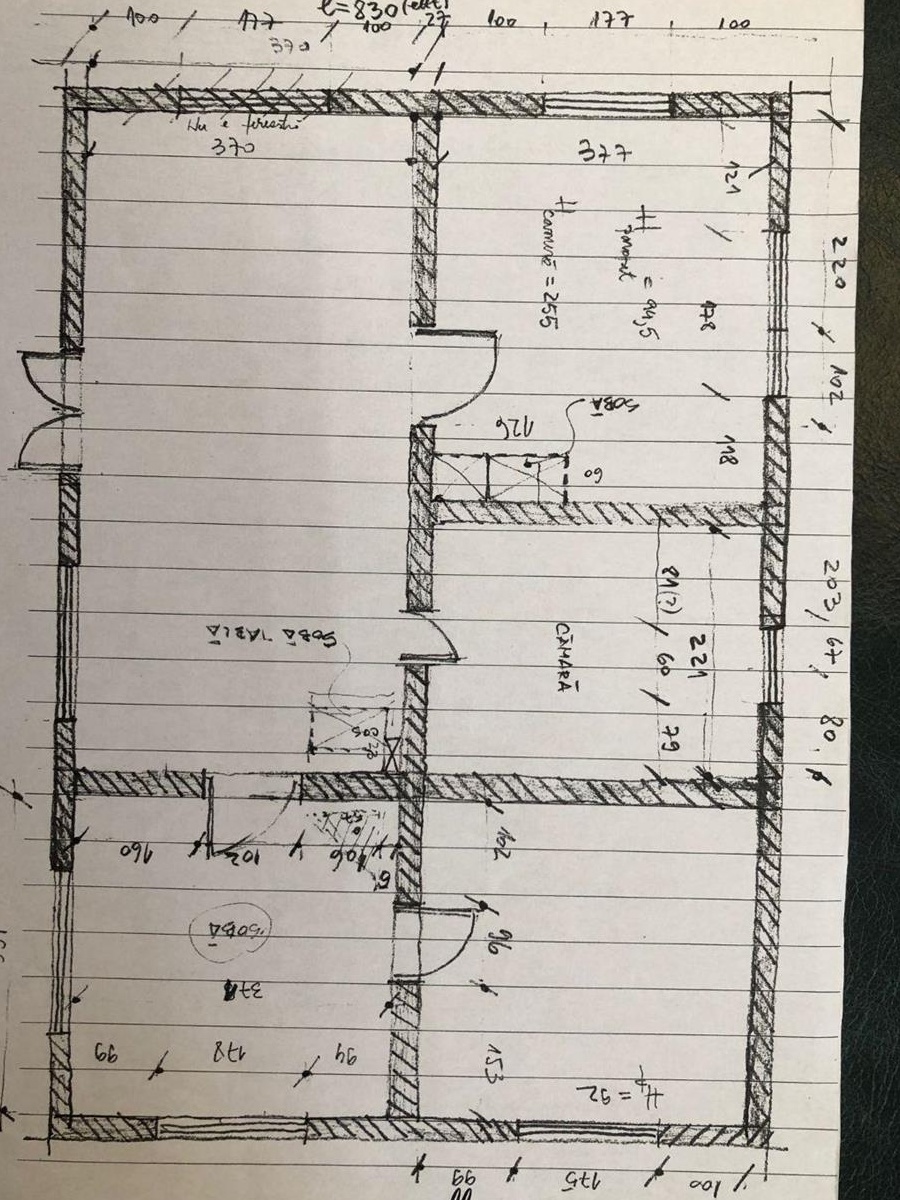 l=830 (ext)
100 177 100 27 100 177 100
370
Nu e fereastră
370
377
121
220
H parapet = 94,5
H cameră = 255
178
102
SOBĂ
126
60
118
81(?)
203, 67, 80
SOBĂ TABLĂ
CĂMARĂ
221
60
79
COȘ
160 102 106
102
SOBĂ
96
371
99 178 94
153
Hp = 92
99 175 100